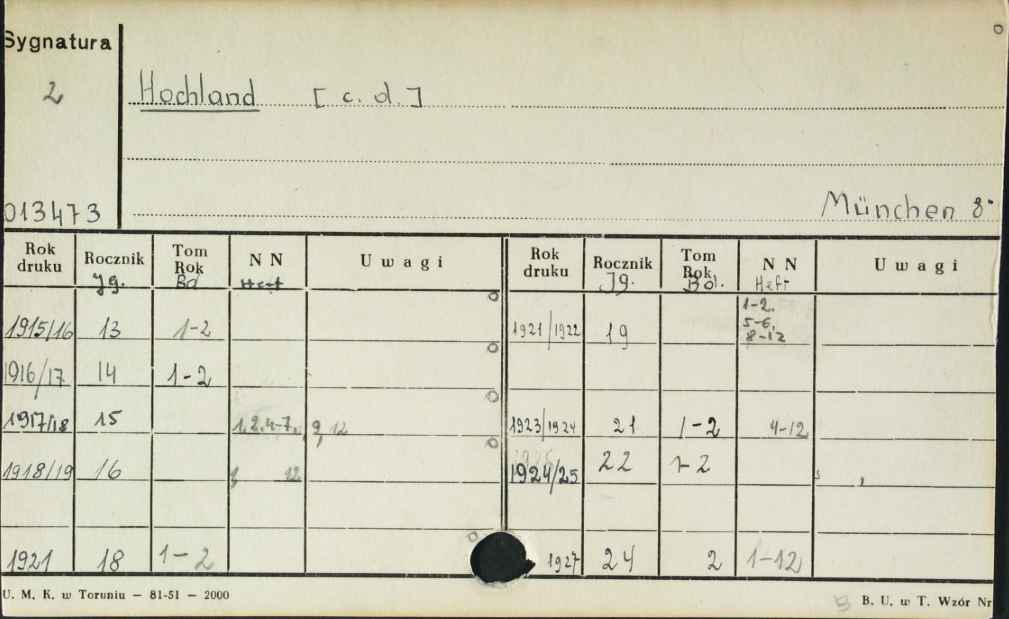 Sygnatura
2 Hochland [c. d.]
013473 München 8°
Rok druku Rocznik Tom Rok N N Uwagi Rok druku Rocznik Tom Rok N N Uwagi
Jg. Bd Heft Jg. Bd. Heft
1915/16 13 1-2 1921/1922 19 1-2. 5-6, 8-12
1916/17 14 1-2
1917/18 15 1,2,4-7, 9, 12 1923/1924 21 1-2 4-12
1918/19 16 12 1924/25 22 1-2
1921 18 1-2 1927 24 2 1-12
U. M. K. w Toruniu — 81-51 — 2000 B. U. w T. Wzór Nr